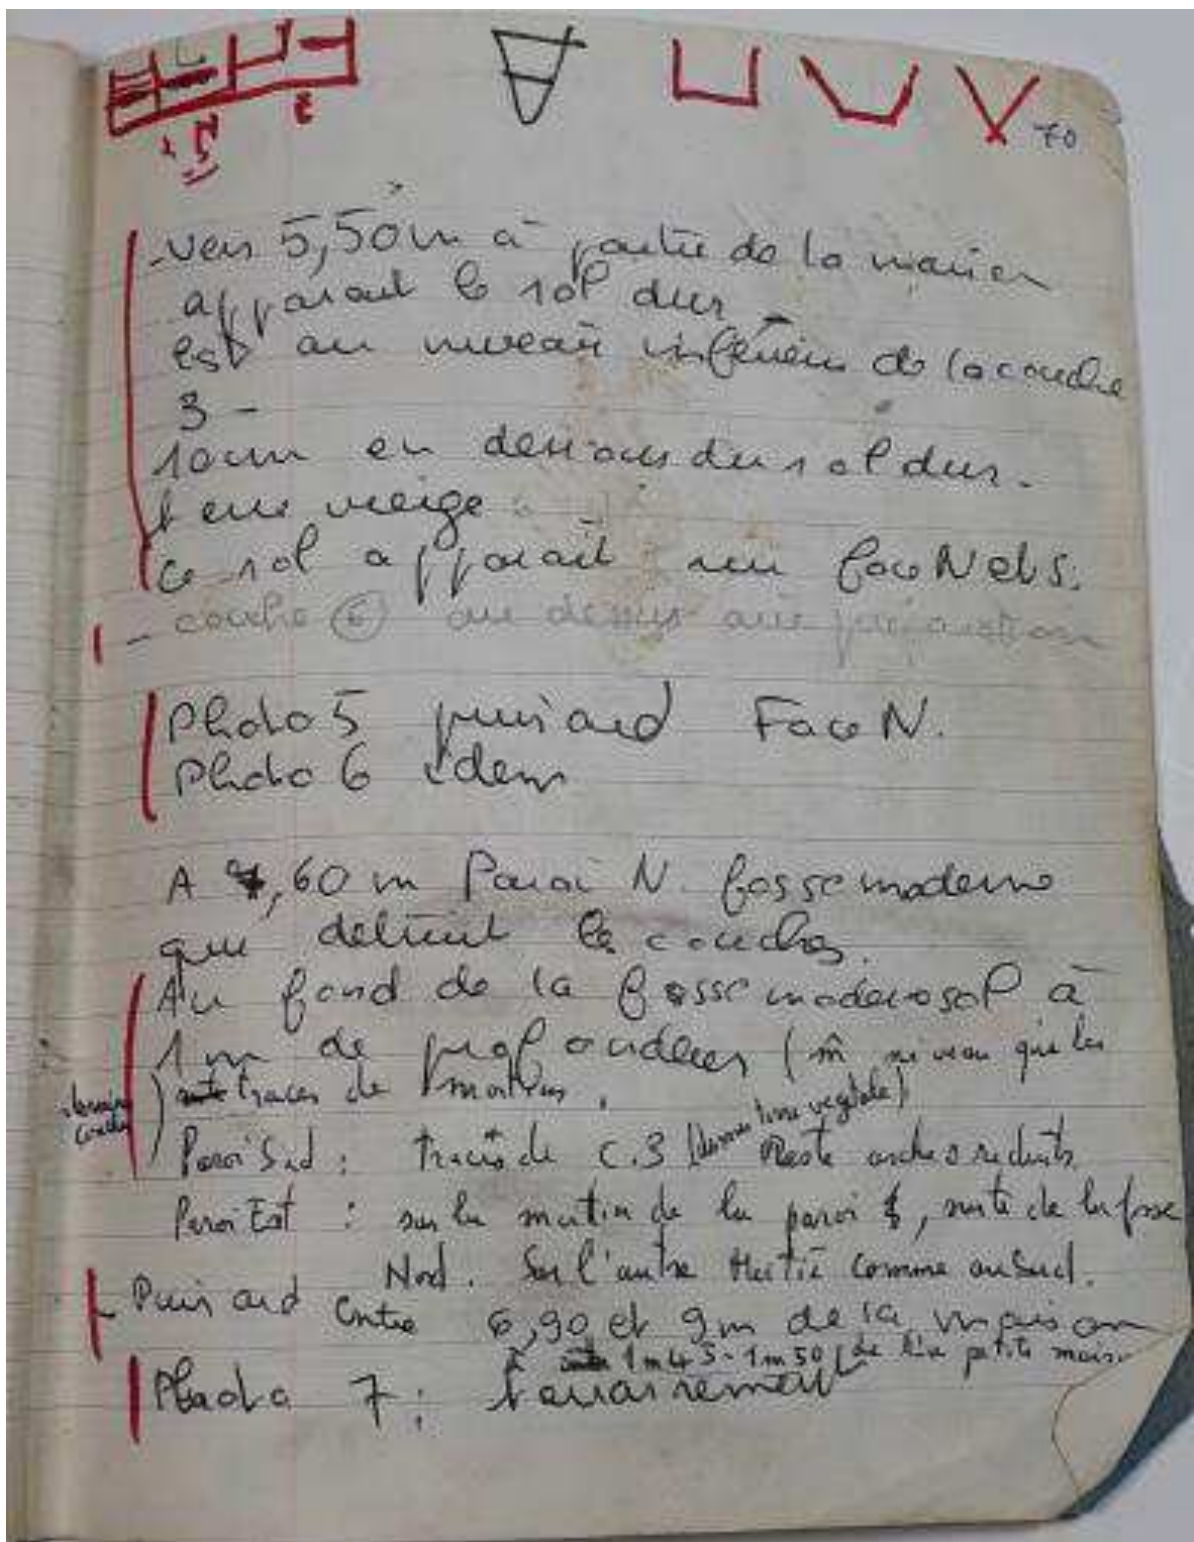 70
- Vers 5,50 m à partir de la maison
apparait le sol dur -
est au niveau inférieur de la couche
3 -
10 cm en dessous du sol dur.
terre vierge
Ce sol apparaît sur face N et S.
- couche ⑥ au dessus
Photo 5 puisard Face N.
Photo 6 idem
A ,60 m Paroi N. fosse moderne
qui détruit les couches.
Au fond de la fosse moderne sol à
1 m de profondeur (m̂ niveau que les
traces de mortier.
Paroi Sud : traces de C.3 (terre végétale) Reste
Paroi Est : sur la moitié de la paroi, suite de la fosse
Nord. Sur l'autre moitié comme au Sud.
Puisard entre 6,90 et 9 m de la maison
à 1 m 45 - 1 m 50 de la petite maison
Photo 7 :